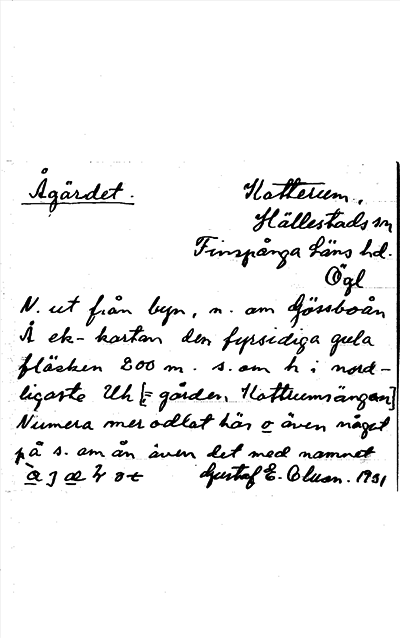 Ågärdet.
Kotterum,
Hällestads sn
Finspånga läns hd.
Ögl
N. ut från byn, n. om Gössboån
Å ek-kartan den fyrsidiga gula
fläcken 200 m. s. om h i nord-
ligaste Uh [= gården, Kotterumsängen]
Numera mer odlat här o även något
på s. om ån även det med namnet
Gustaf E. Olson. 1931